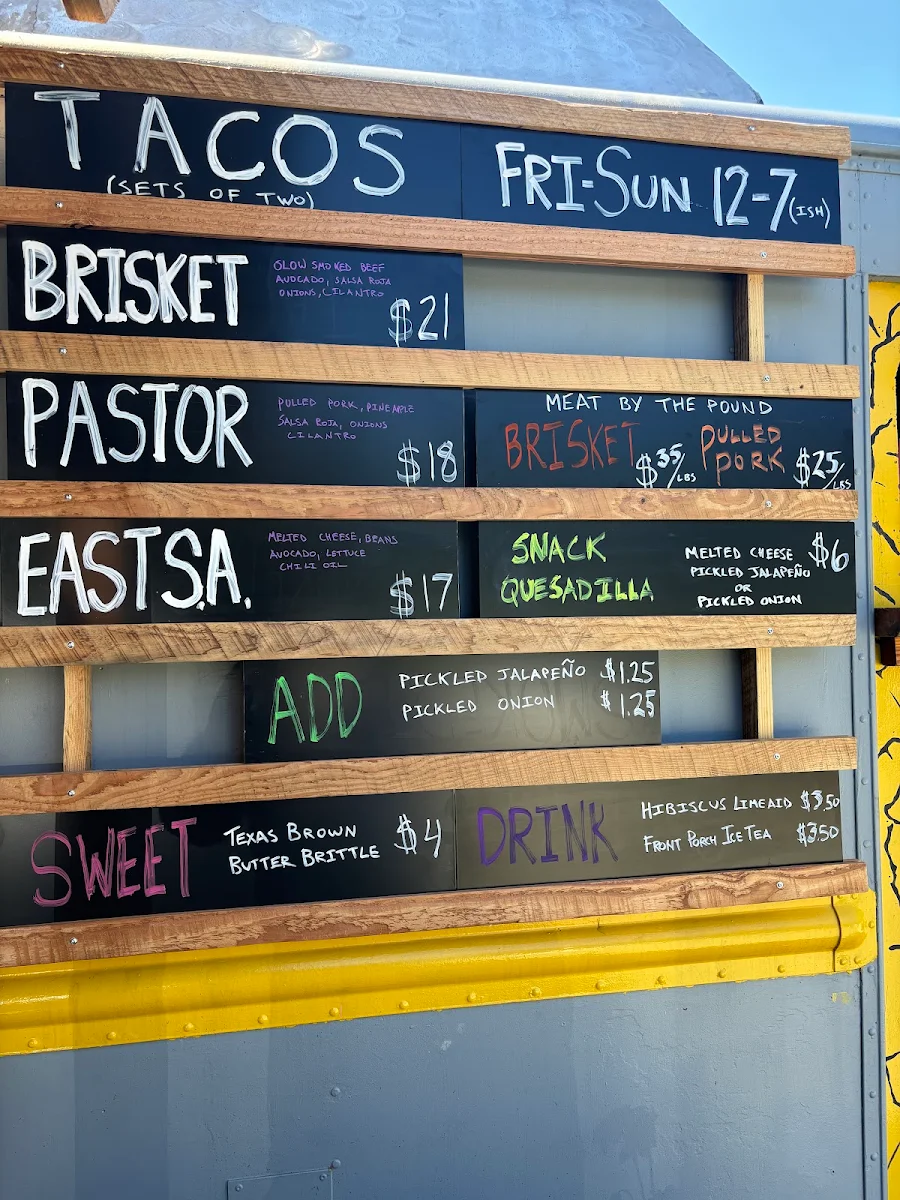 TACOS
(SETS OF TWO)
FRI-SUN 12-7(ISH)
BRISKET
SLOW SMOKED BEEF
AVOCADO, SALSA ROJA
ONIONS, CILANTRO
$21
PASTOR
PULLED PORK, PINEAPLE
SALSA ROJA, ONIONS
CILANTRO
$18
MEAT BY THE POUND
BRISKET $35/LBS
PULLED
PORK $25/LBS
EAST S.A.
MELTED CHEESE, BEANS
AVOCADO, LETTUCE
CHILI OIL
$17
SNACK
QUESADILLA
MELTED CHEESE $6
PICKLED JALAPEÑO
OR
PICKLED ONION
ADD
PICKLED JALAPEÑO $1.25
PICKLED ONION $1.25
SWEET
TEXAS BROWN
BUTTER BRITTLE
$4
DRINK
HIBISCUS LIMEAID $3.50
FRONT PORCH ICE TEA $3.50